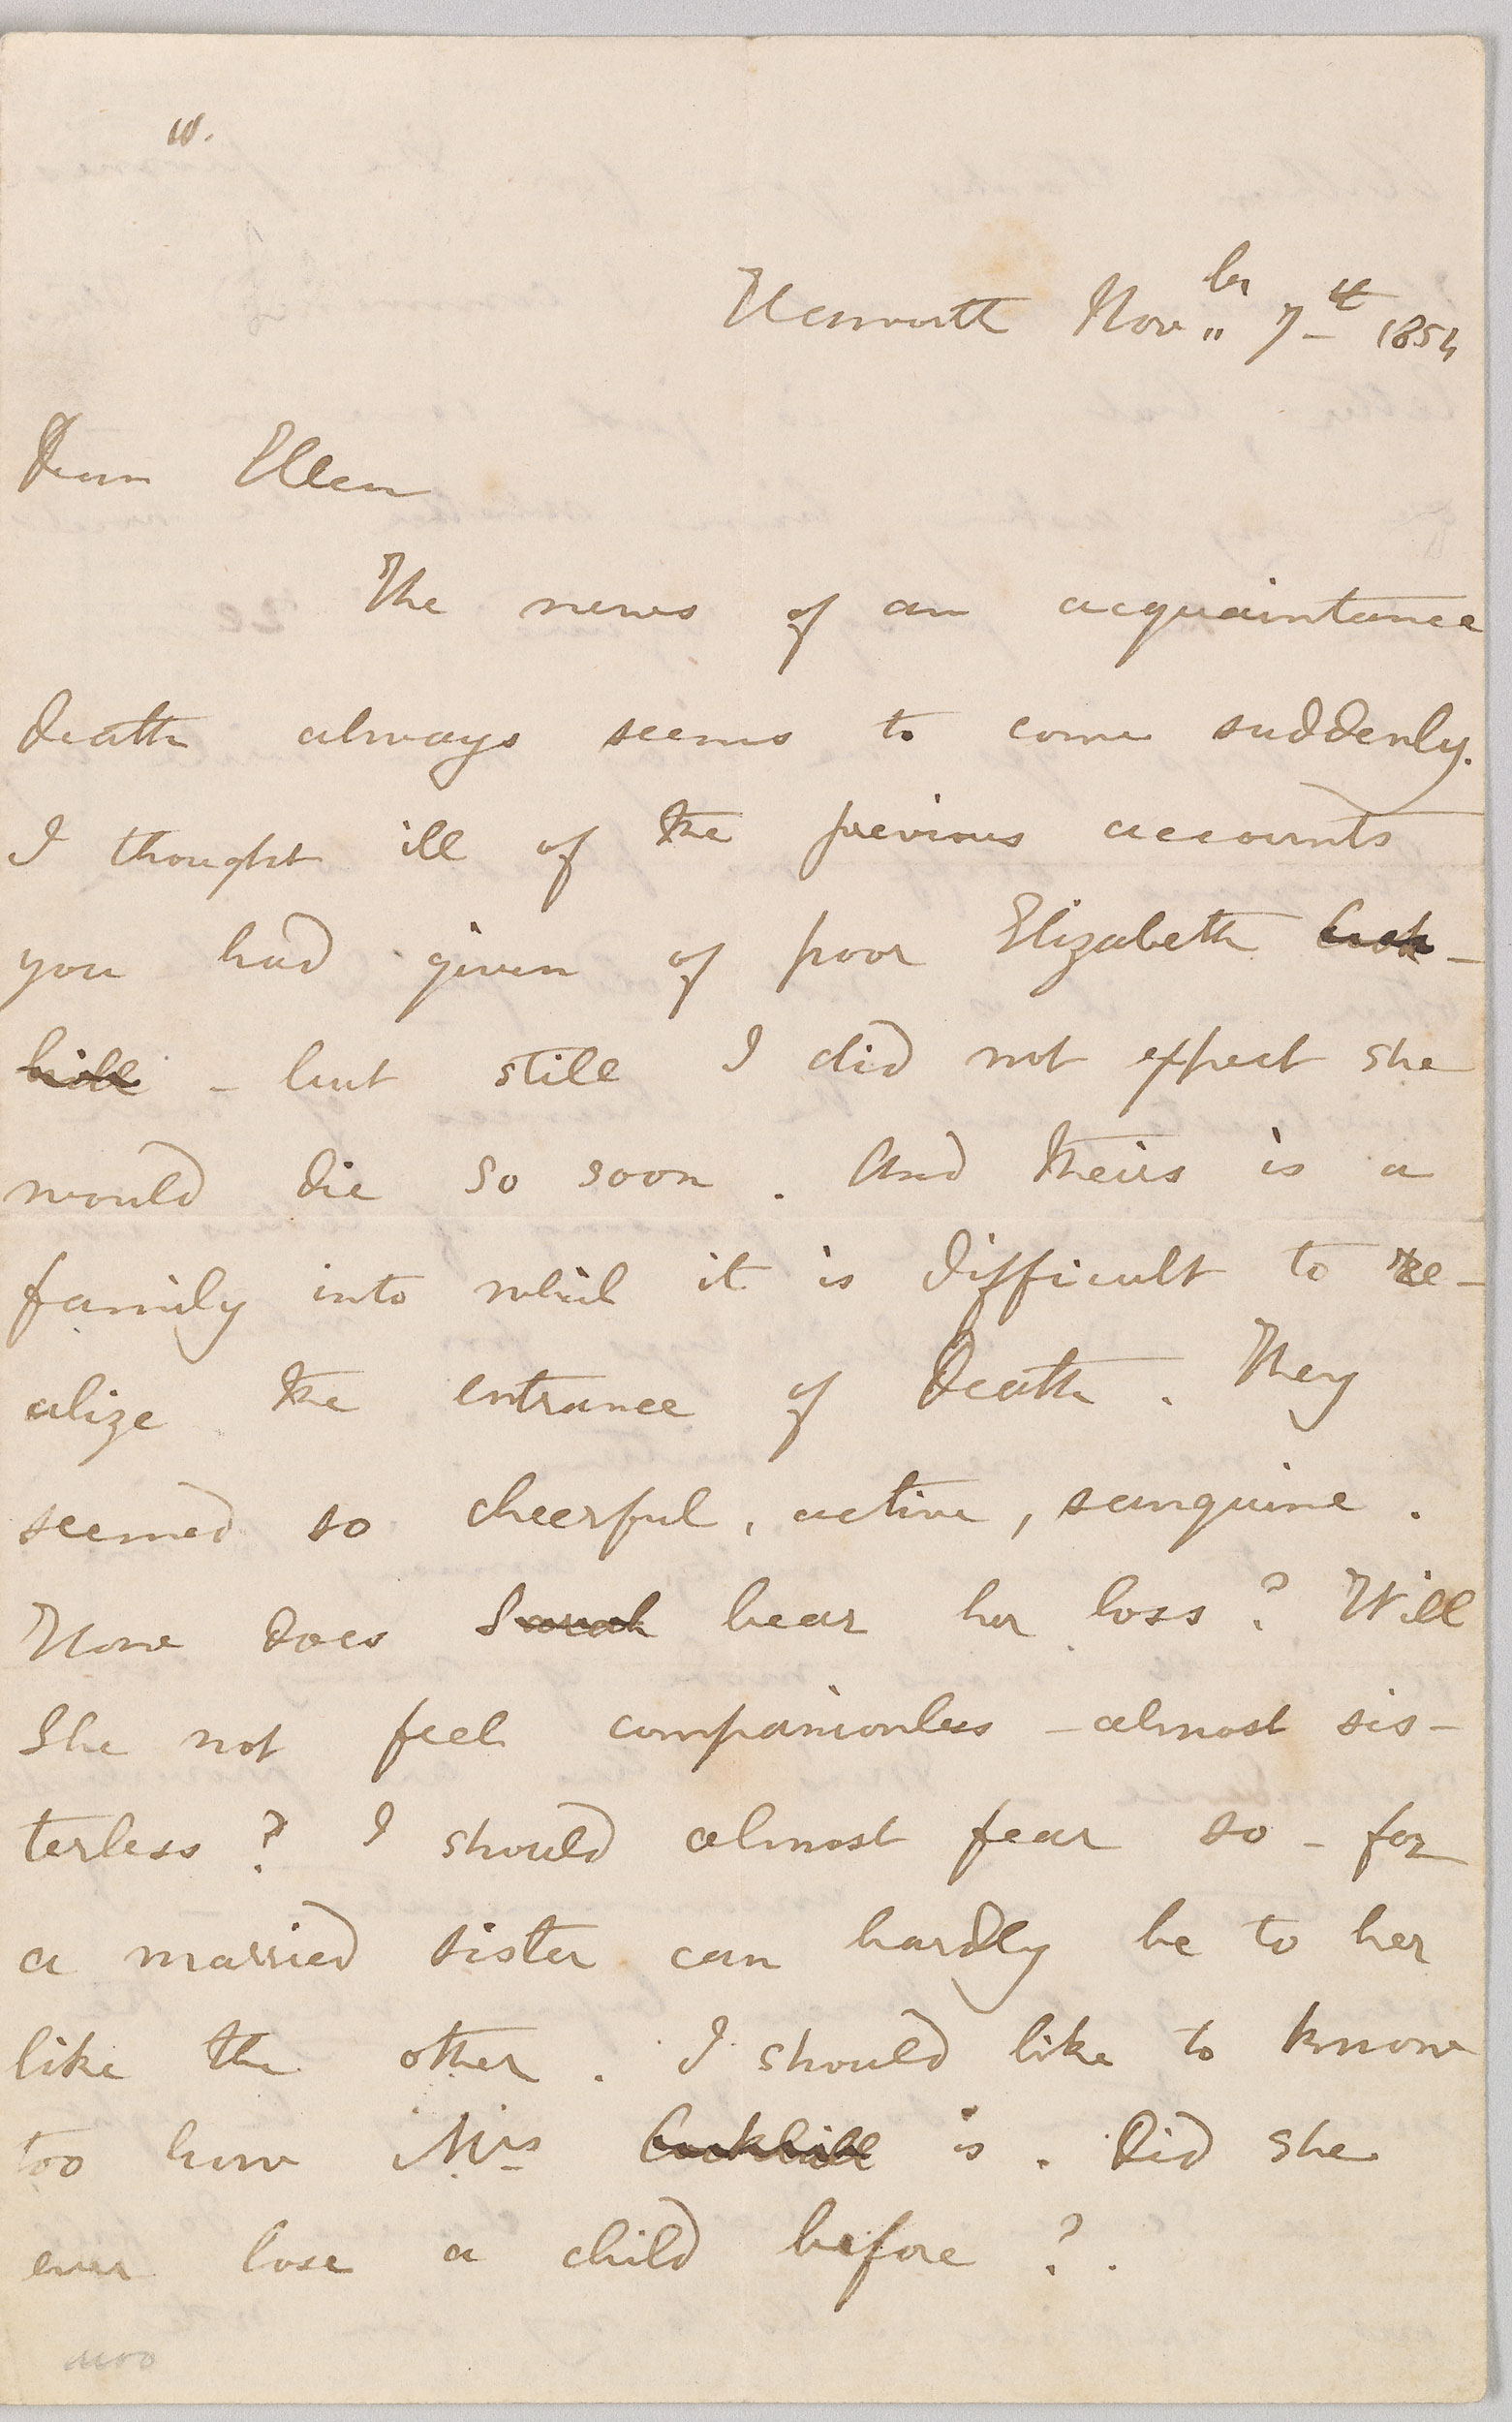 Haworth Novbr.. 7th 1854
Dear Ellen
The news of an acquaintance
death always seems to come suddenly.
I thought ill of the previous accounts
you had given of poor Elizabeth Cock-
hill - but still I did not expect she
would die so soon. And theirs is a
family into which it is difficult to re-
alize the entrance of Death. They
seemed so cheerful, active, sanguine.
How does Sarah bear her loss? Will
She not feel companionless - almost sis-
terless? I should almost fear so - for
a married sister can hardly be to her
like the other. I should like to know
too how Mrs Cockhill is. Did she
ever lose a child before?.